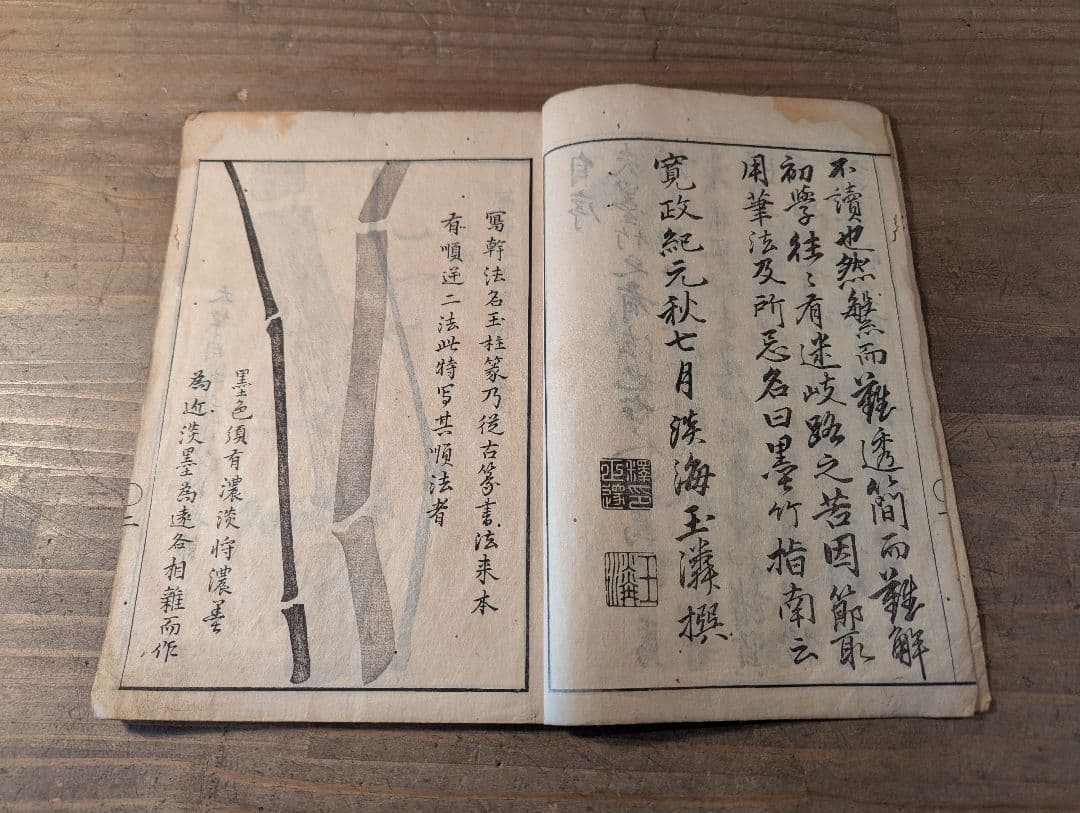 不讀也然繁而難透簡而難解
初學往〻有迷岐路之苦因節取
用筆法及所忌名曰墨竹指南云
寛政紀元秋七月淡海玉潾撰
寫幹法名玉柱篆乃從古篆書法来本
有順逆二法此特写其順法者
墨色須有濃淡將濃墨
為近淡墨為遠各相雜而作
二